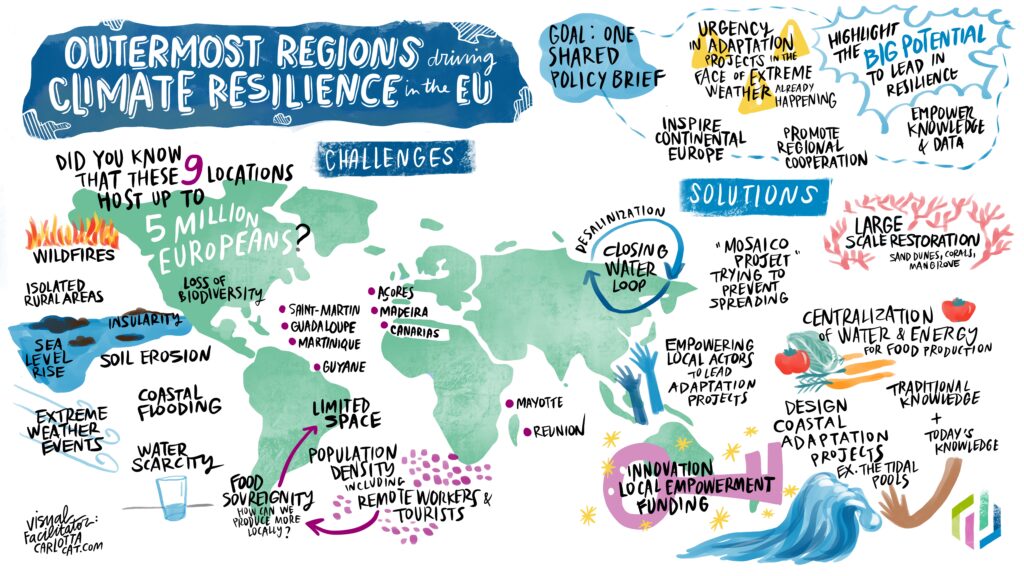 OUTERMOST REGIONS driving
CLIMATE RESILIENCE in the EU
GOAL: ONE
SHARED
POLICY BRIEF
URGENCY
IN ADAPTATION
PROJECTS IN THE
FACE OF EXTREME
WEATHER ALREADY
HAPPENING
HIGHLIGHT
THE BIG POTENTIAL
TO LEAD IN
RESILIENCE
INSPIRE
CONTINENTAL
EUROPE
PROMOTE
REGIONAL
COOPERATION
EMPOWER
KNOWLEDGE
& DATA
CHALLENGES
DID YOU KNOW
THAT THESE 9 LOCATIONS
HOST UP TO
5 MILLION
EUROPEANS?
WILDFIRES
ISOLATED
RURAL AREAS
LOSS OF
BIODIVERSITY
INSULARITY
SEA
LEVEL
RISE
SOIL EROSION
COASTAL
FLOODING
EXTREME
WEATHER
EVENTS
WATER
SCARCITY
SAINT-MARTIN
GUADALOUPE
MARTINIQUE
GUYANE
AÇORES
MADEIRA
CANARIAS
MAYOTTE
REUNION
LIMITED
SPACE
POPULATION
DENSITY
INCLUDING
REMOTE WORKERS &
TOURISTS
FOOD
SOVEREIGNITY
HOW CAN WE
PRODUCE MORE
LOCALLY?
visual
Facilitator:
CARLOTTA
CAT.COM
SOLUTIONS
DESALINIZATION
CLOSING
WATER
LOOP
"MOSAICO
PROJECT"
TRYING TO
PREVENT
SPREADING
LARGE
SCALE RESTORATION
SAND DUNES, CORALS,
MANGROVE
EMPOWERING
LOCAL ACTORS
TO LEAD
ADAPTATION
PROJECTS
CENTRALIZATION
OF WATER & ENERGY
FOR FOOD PRODUCTION
TRADITIONAL
KNOWLEDGE
+
TODAY'S
KNOWLEDGE
DESIGN
COASTAL
ADAPTATION
PROJECTS
EX. THE TIDAL
POOLS
INNOVATION
LOCAL EMPOWERMENT
FUNDING